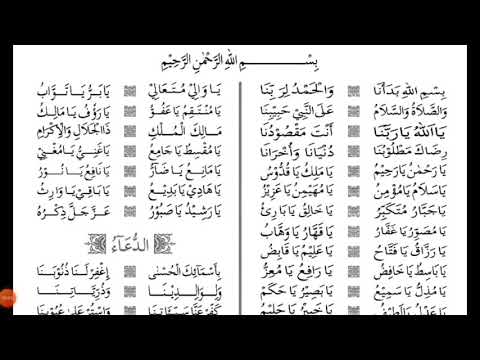 بِسْمِ اللهِ الرَّحْمٰنِ الرَّحِيْمِ
بِسْمِ اللهِ بَدَأْنَا وَالْحَمْدُ لِرَبِّنَا
وَالصَّلَاةُ وَالسَّلَامُ عَلَى النَّبِيِّ حَبِيْبِنَا
يَا اَللهُ يَا رَبَّنَا أَنْتَ مَقْصُوْدُنَا
رِضَاكَ مَطْلُوْبُنَا دُنْيَانَا وَأُخْرَانَا
يَا رَحْمٰنُ يَا رَحِيْمُ يَا مَلِكُ يَا قُدُّوْسُ
يَا سَلَامُ يَا مُؤْمِنُ يَا مُهَيْمِنُ يَا عَزِيْزُ
يَا جَبَّارُ مُتَكَبِّرُ يَا خَالِقُ يَا بَارِئُ
يَا مُصَوِّرُ يَا غَفَّارُ يَا قَهَّارُ يَا وَهَّابُ
يَا رَزَّاقُ يَا فَتَّاحُ يَا عَلِيْمُ يَا قَابِضُ
يَا بَاسِطُ يَا خَافِضُ يَا رَافِعُ يَا مُعِزُّ
يَا مُذِلُّ يَا سَمِيْعُ يَا بَصِيْرُ يَا حَكَمُ
يَا عَدْلُ يَا لَطِيْفُ يَا خَبِيْرُ يَا حَلِيْمُ
يَا وَالِيْ مُتَعَالِيْ يَا بَرُّ يَا تَوَّابُ
يَا مُنْتَقِمُ يَا عَفُوُّ يَا رَؤُفُ يَا مَالِكُ
مَالِكَ الْمُلْكِ ذَا الْجَلَالِ وَالْإِكْرَامِ
يَا مُقْسِطُ يَا جَامِعُ يَا غَنِيُّ يَا مُغْنِيْ
يَا مَانِعُ يَا ضَارُّ يَا نَافِعُ يَا نُوْرُ
يَا هَادِيْ يَا بَدِيْعُ يَا بَاقِيْ يَا وَارِثُ
يَا رَشِيْدُ يَا صَبُوْرُ عَزَّ جَلَّ ذِكْرُهُ
الدُّعَاءُ
بِأَسْمَائِكَ الْحُسْنٰى إِغْفِرْ لَنَا ذُنُوْبَنَا
وَلِوَالِدِيْنَا وَذُرِّيَّاتِنَا
كَفِّرْ عَنَّا سَيِّئَاتِنَا وَاسْتُرْ عَلَى عُيُوْبِنَا